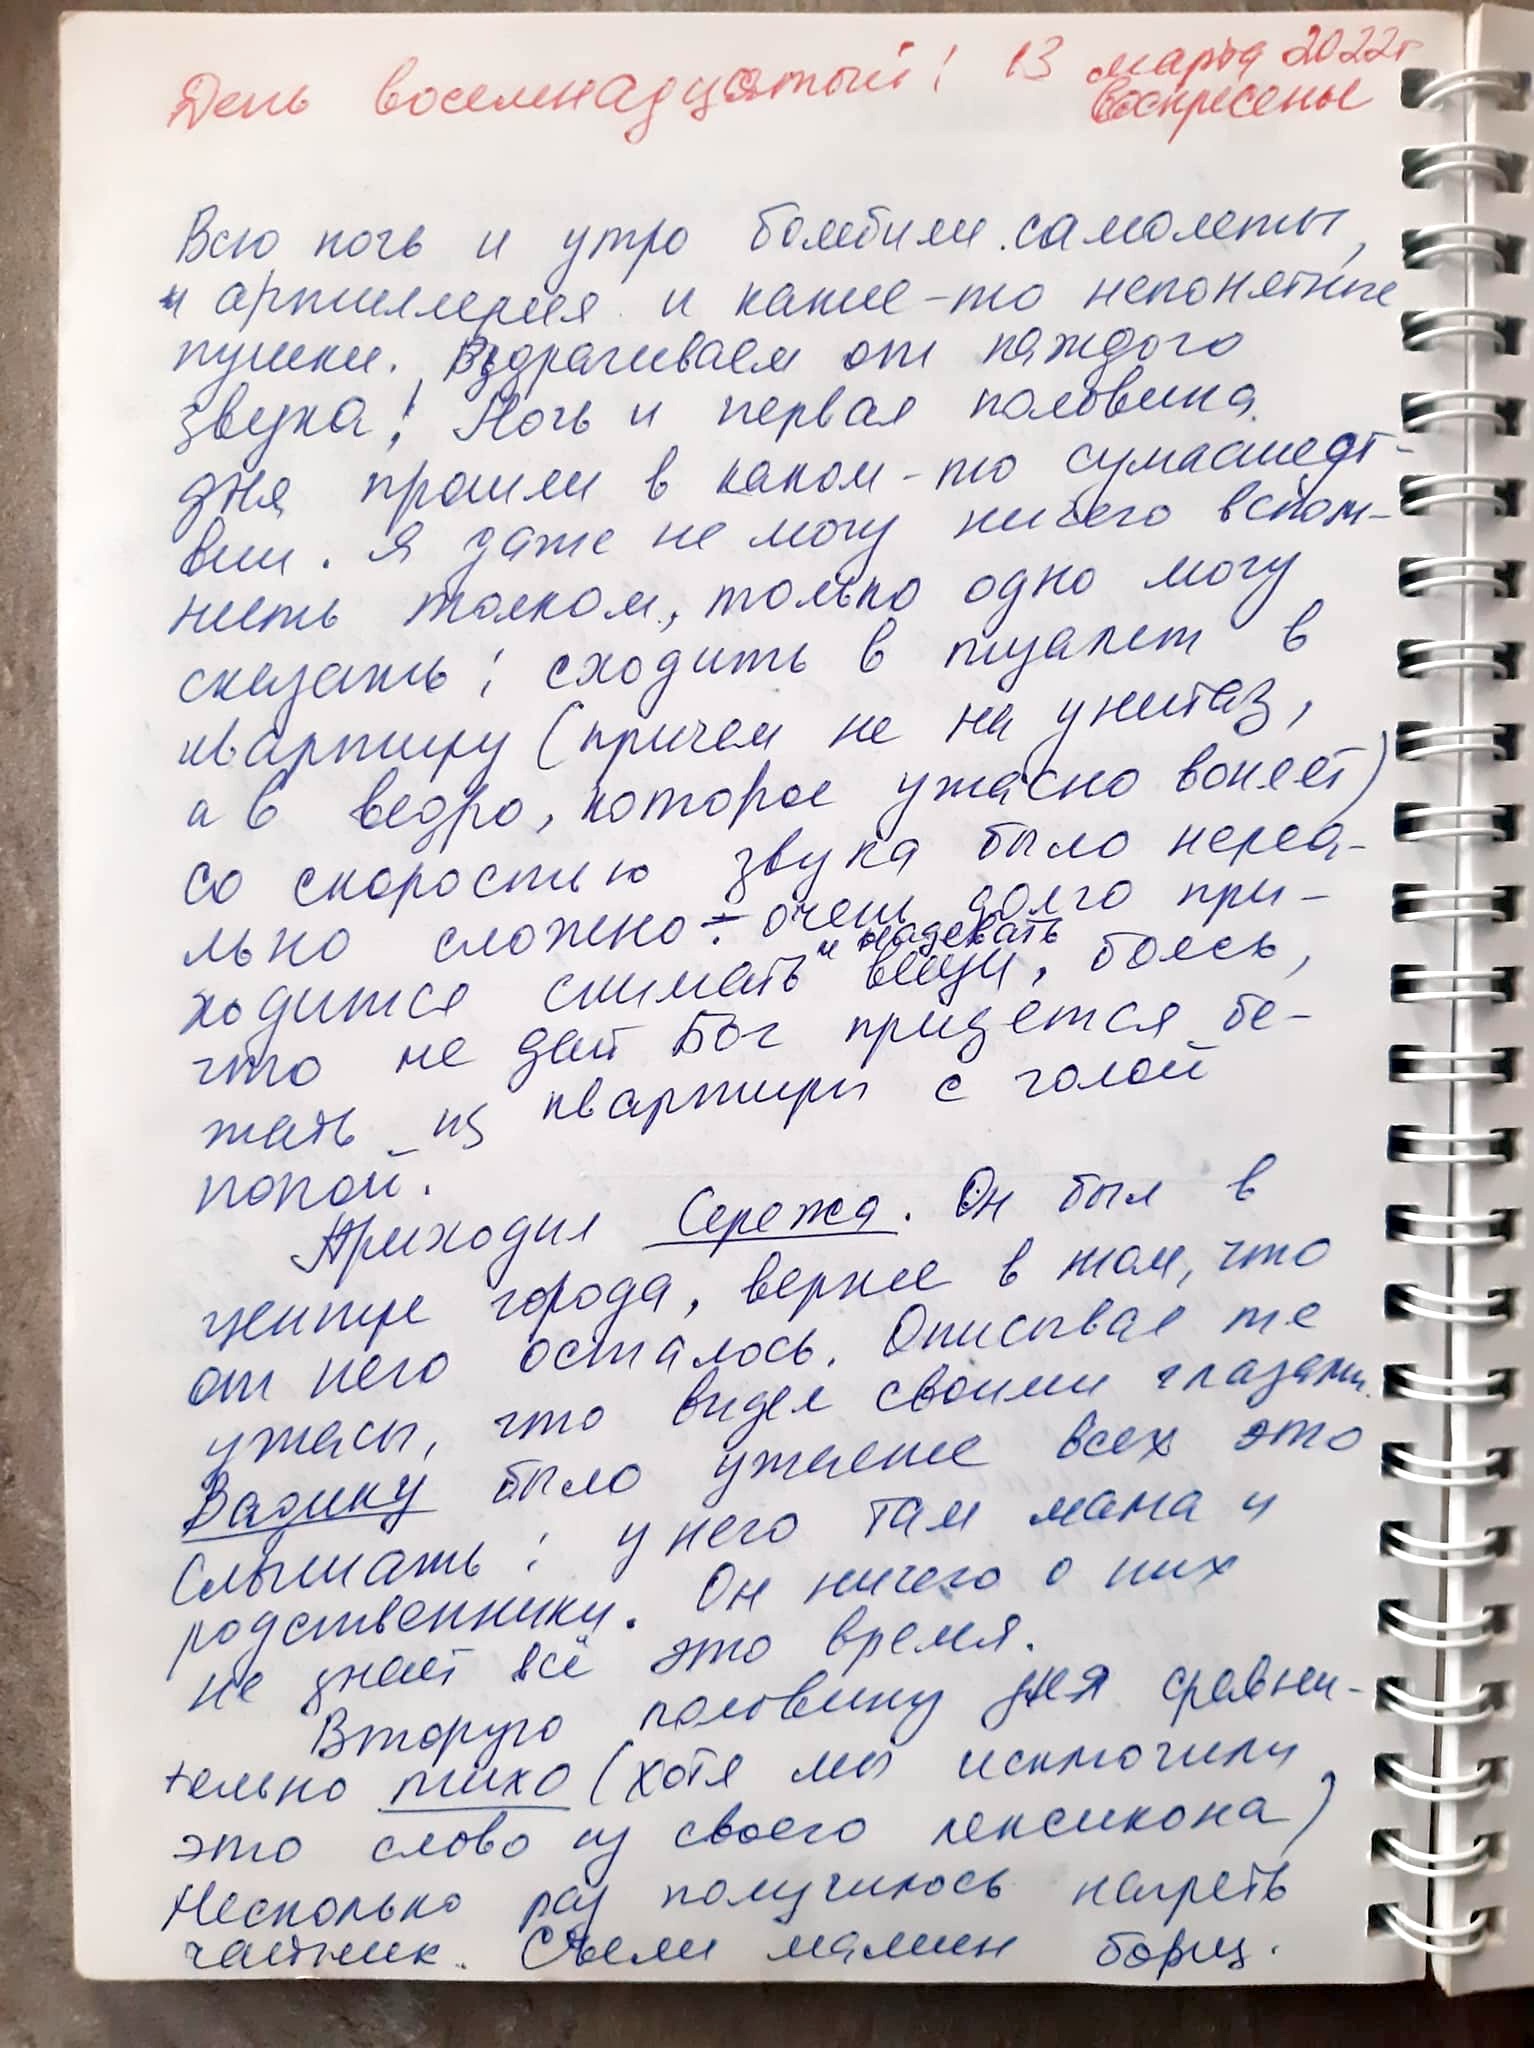 День восемнадцатый! 13 марта 2022г
Воскресенье
Всю ночь и утро бомбили самолеты,
и артиллерия и какие-то непонятные
пушки. Вздрагиваем от каждого
звука! Ночь и первая половина
дня прошли в каком-то сумасшедст-
вии. Я даже не могу ничего вспом-
нить толком, только одно могу
сказать: сходить в туалет в
квартиру (причем не на унитаз,
а в ведро, которое ужасно воняет)
со скоростью звука было нереа-
льно сложно: очень долго при-
ходится снимать и надевать вещи, боясь,
что не дай Бог придется бе-
жать из квартиры с голой
попой.
Приходил Сережа. Он был в
центре города, вернее в том, что
от него осталось. Описывал те
ужасы, что видел своими глазами.
Вадику было ужаснее всех это
слышать: у него там мама и
родственники. Он ничего о них
не знает всё это время.
Вторую половину дня сравни-
тельно тихо (хотя мы исключили
это слово из своего лексикона)
Несколько раз получилось нагреть
чайник. Съели мамин борщ.